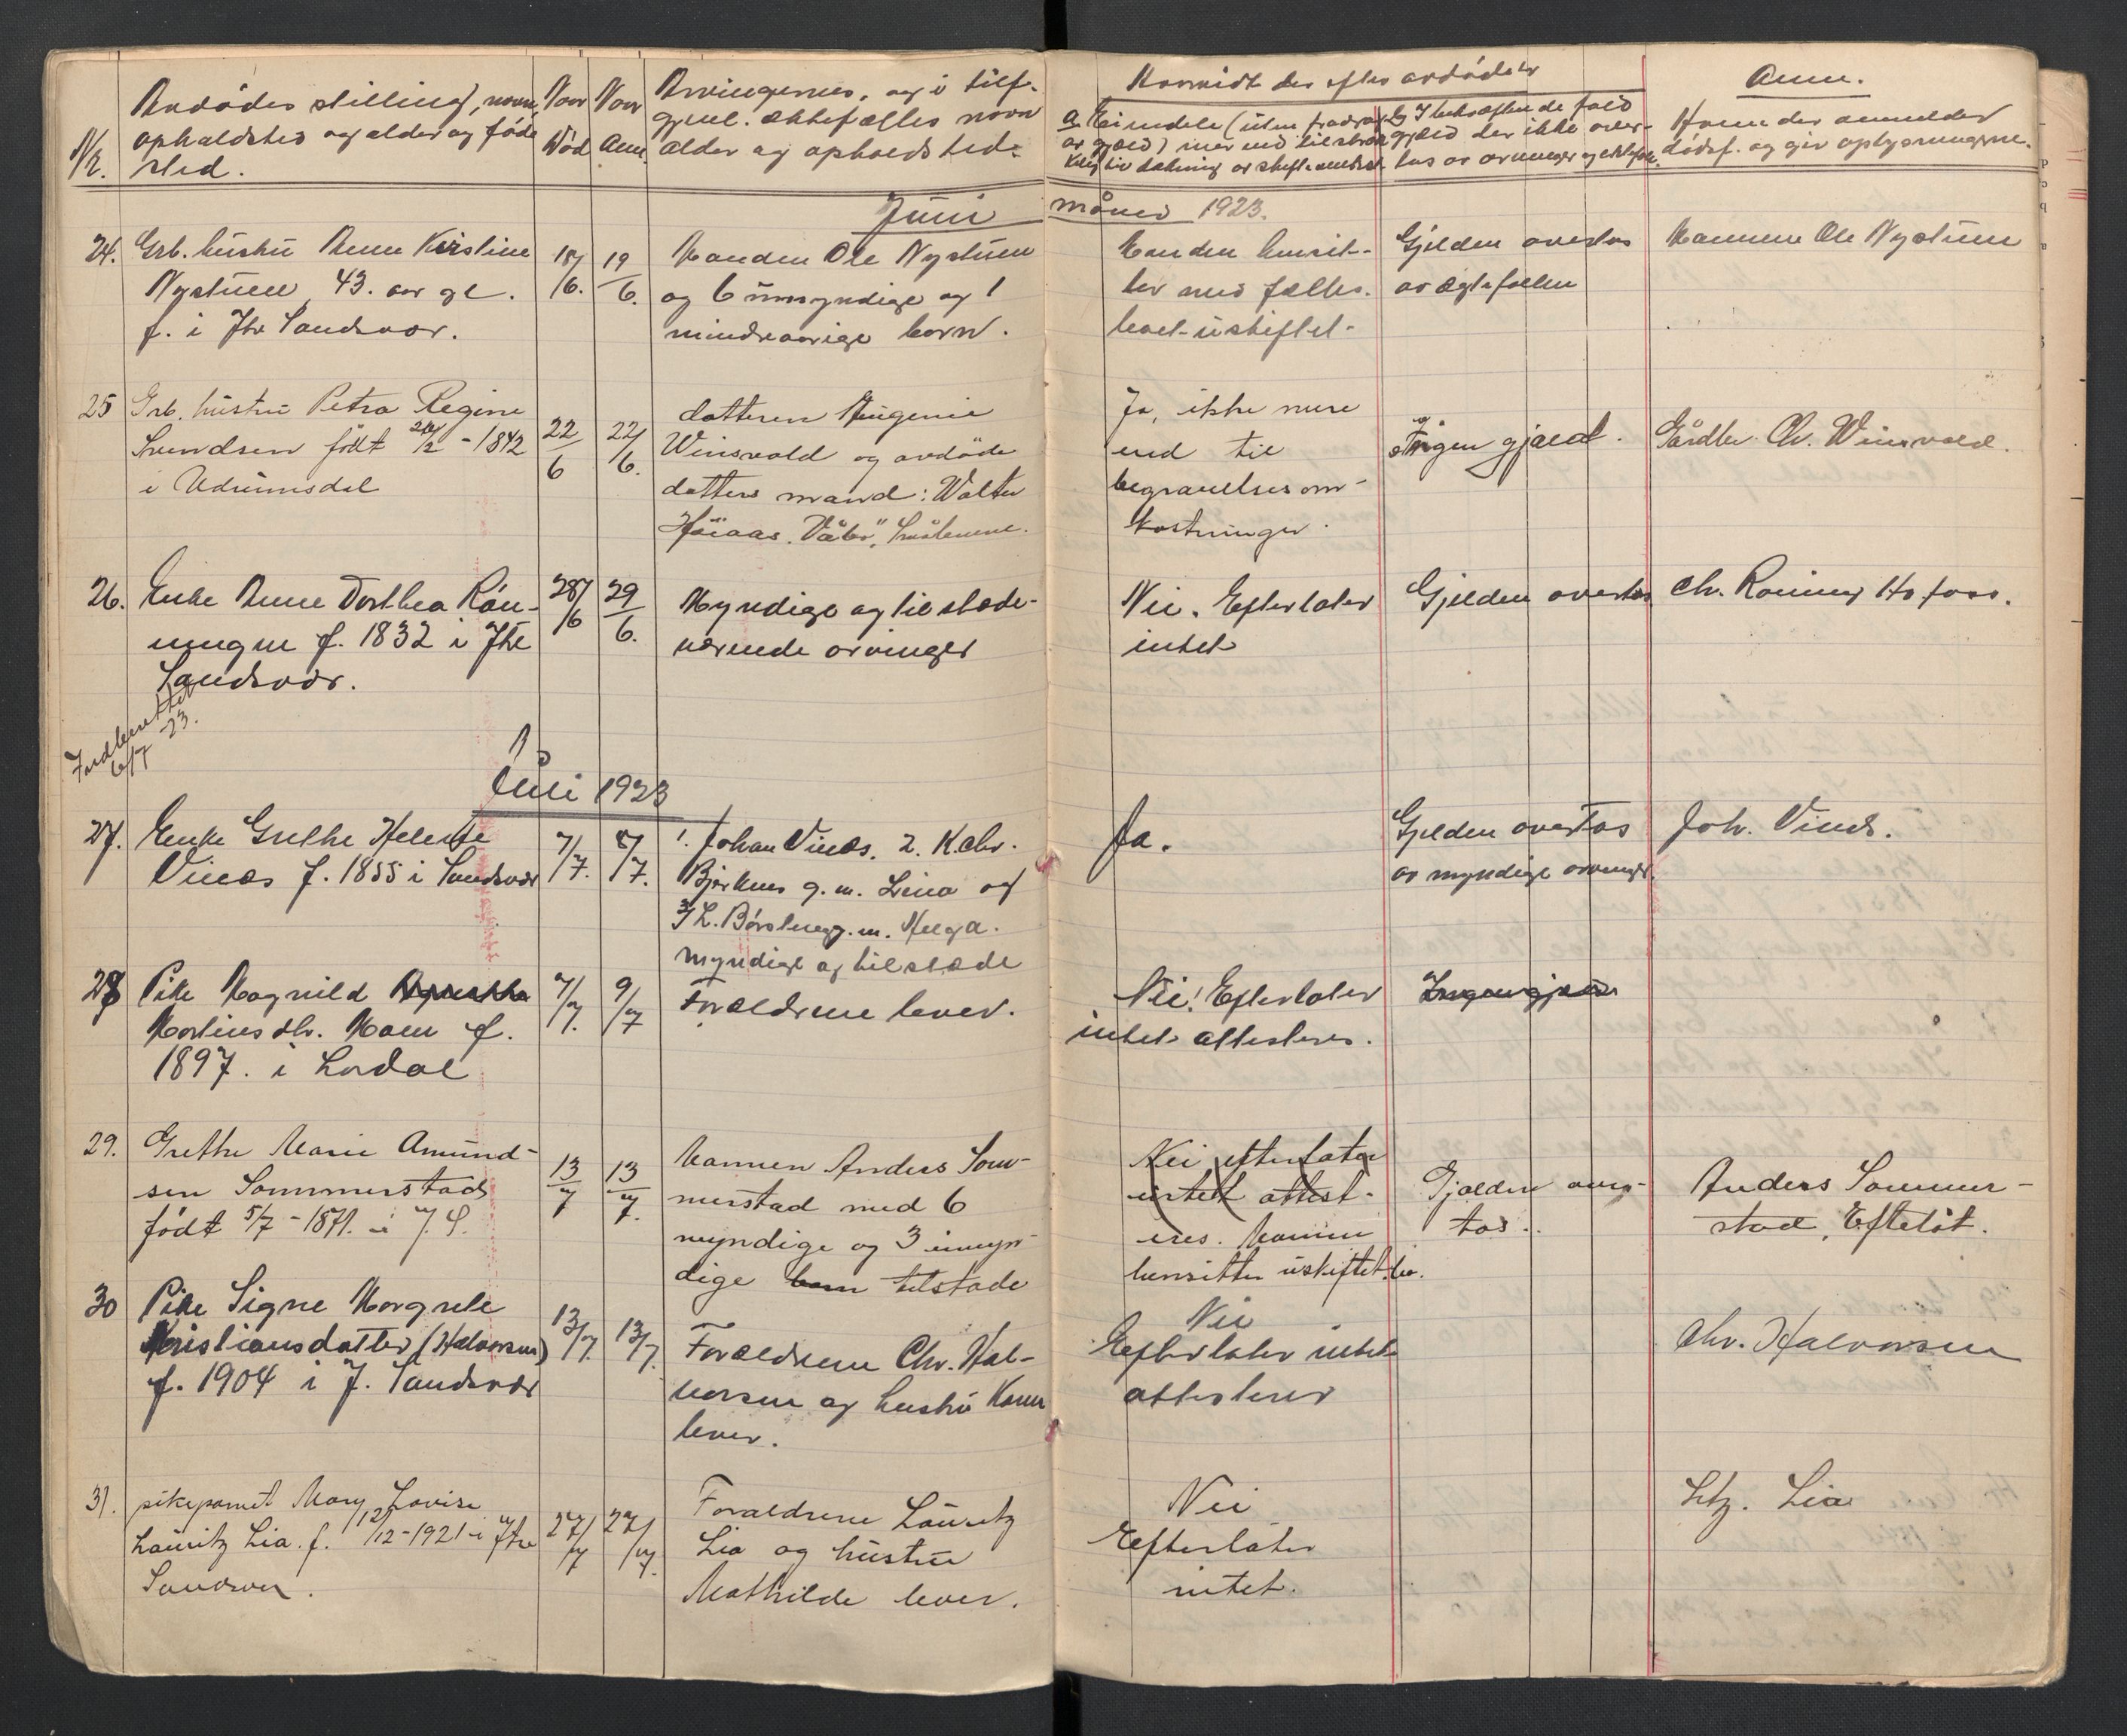 Nr.
Avdødes stilling, navn,
opholdsted og alder og føde
sted.
Naar
Død
Naar
Anm.
Arvingernes, og i tilf.
gjæl. ektefælles navn
alder og opholdsted.
Hvorvidt der efter avdøde er
a Eiendele (uten fradrag
av gjæld) mer end tilstræk
kelig til dækning av skifteomkost.
b I bekræftende fald
gjæld der ikke over-
tas av arvinger og ektefæl.
Anm.
Hvem der anmelder
dødsf. og gir oplysningerne.
Juni måned 1923.
24. Grb. hustru Anne Kirstine
Nystuen 43. aar gl.
f. i Ytr Sandsvær.
18/6. 19/6.
Manden Ole Nystuen
og 6 umyndige og 1
mindreaarige barn.
Manden hensit-
ter med fælles.
boet uskiftet.
Gjelden overtas
av ægtefællen
Mannen Ole Nystuen
25 Grb. hustru Petra Regine
Svendsen født 26/2 - 1842
i Udrumsdal
22/6 22/6.
datteren Eugenie
Winsvold og avdøde
datters mand: Walter
Høiaas. "Våler", Småleneue.
Ja, ikke mere
end til
begravelsesom-
kostninger.
Ingen gjæld.
Gårdbr. Ch. Winsvold.
26. Enke Anne Dorthea Røn-
ningen f. 1832 i Ytr
Sandsvær.
28/6 29/6.
Myndige og tilstede-
værende arvinger
Nei. Efterlater
intet
Gjelden overtas
Chr. Roning Hofoss.
Indberettet
6/7 -23.
Juli 1923
27. Enke Grethe Helene
Vinæs f. 1855 i Sandsvær
7/7. 8/7.
1. Johan Vinæs. 2. K. Chr.
Bjerknes g. m. Lina og
3 L. Børsteng g. m. Helga.
myndige og tilstede
Ja.
Gjelden overtas
av myndige arvinger.
Joh. Vinæs.
28 Pike Magnild
Martinsdtr. Moen f.
1897. i Lardal
7/7. 9/7
Forældrene lever.
Nei! Efterlater
intet attesteres.
Ingen gjæld
29. Grethe Marie Amund-
sen Sommerstad
født 5/7 - 1871. i Y. S.
13/7 13/7.
Mannen Anders Som-
merstad med 6
myndige og 3 umyn-
dige barn tilstede
Nei efterlater
intet attest-
eres. Mannen
hensitter i uskiftet bo.
Gjælden over-
tas.
Anders Sommer-
stad, Efteløt.
30 Pike Signe Margrete
Kristiansdatter (Halvorsen)
f. 1904 i Y. Sandsvær
13/7. 13/7.
Forældrene Chr. Hal-
vorsen og hustru Karen
lever.
Nei
Efterlater intet
attesteres
Chr. Halvorsen
31. pikebarnet Mary Lovise
Lauritz Lia. f. 12/12 - 1921 i Ytre
Sandsvær.
27/7 27/7.
Forældrene Lauritz
Lia og hustru
Mathilde lever.
Nei
Efterlater
intet.
Ltz. Lia